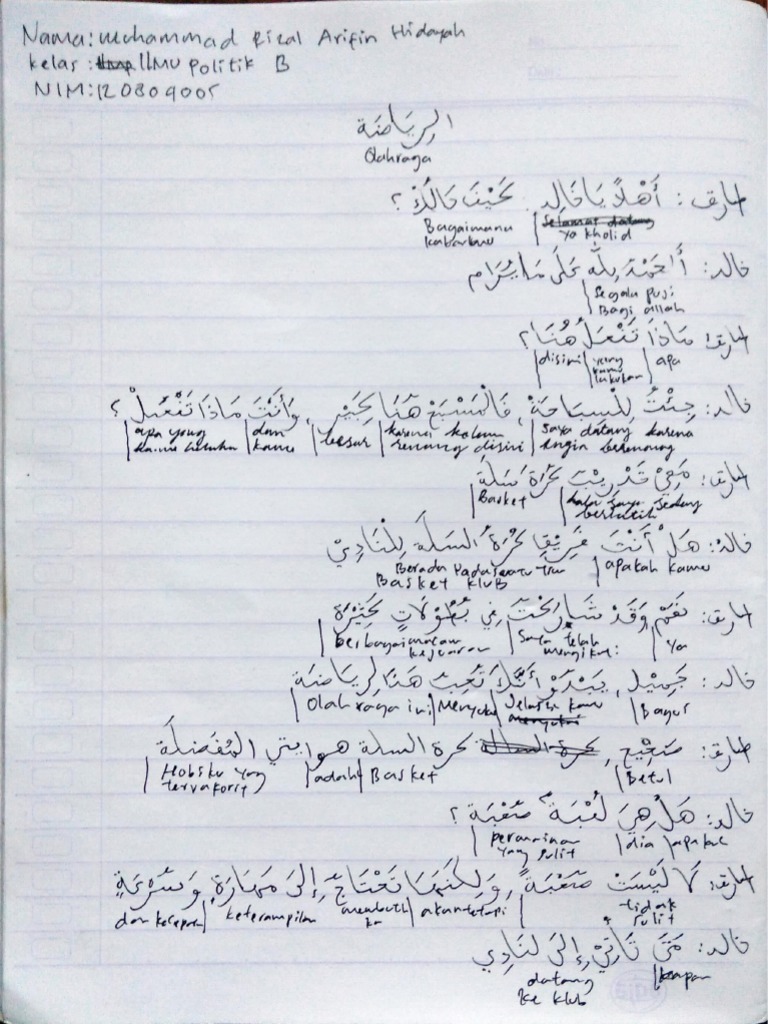 Nama: Muhammad Rizal Arifin Hidayah
kelas: ILMU politik B
NIM: 120809005
الرِّيَاضَة
Olahraga
طارق: أَهْلاً يَا خَالِد كَيْفَ حَالُكَ؟
Bagaimana kabarkamu | Selamat datang ya kholid
خالد: أَلحَمْدُ لِلّه عَلَى مَا يُرَام
| Segala puji Bagi allah
طارق: مَاذَا تَفْعَلُ هُنَا؟
| disini | yang kamu lakukan | apa
خالد: جِئْتُ لِلسِبَاحَةْ، فَالْمَسْبَحْ هُنَا كَبِيْر، وَأَنْتَ مَاذَا تَفْعَلْ؟
| apa yang kamu lakukan | dan kamu | besar | karena kolam renang disini | saya datang karena ingin berenang
طارق: مَعِيْ تَدْرِيْب كُرَةْ اسَلَةِ
| Basket | kalau saya sedang berlatih
خالد: هَلْ أَنْتَ فَرِيْقِ كُرَةُ السَلَةِ لِلْنَادِيْ
Berada pada suatu tim Basket klub | apakah kamu
طارق: نَعَمْ وَقَدْ شَارَكْتَ فِي بُطُوْلَاتٍ كَثِيْرَةْ
| berbagai macam kejuaraan | saya telah mengikuti | Ya
خالد: جَمِيْل، يَبْدُوْ أَنَّكَ تُحِبُ هَذَا لرِيَاضَة
| Olahraga ini | Menyukai | Jelaslah kamu | Bagus
طارق: صَحِيْح، كرة السلة هوايتي المُفَضَلَة
| Hobiku yang tervaforit | adalah | Basket | Betul
خالد: هَلْ هِيَ لُعْبَة صَعْبَة؟
| permainan yang sulit | dia | apakah
طارق: لَا لَيْسَتْ صَعْبَة، وَلَكِنَهَا تَحْتَاجُ إِلَى مَهَارَة، وَسُرْعَةٍ
dan kecepatan | keterampilan | membutuhka | akan tetapi | tidak sulit
خالد: مَتَى تَأْتِيْ إِلَى لنَادِي
datang ke klub | kapan
SIDU